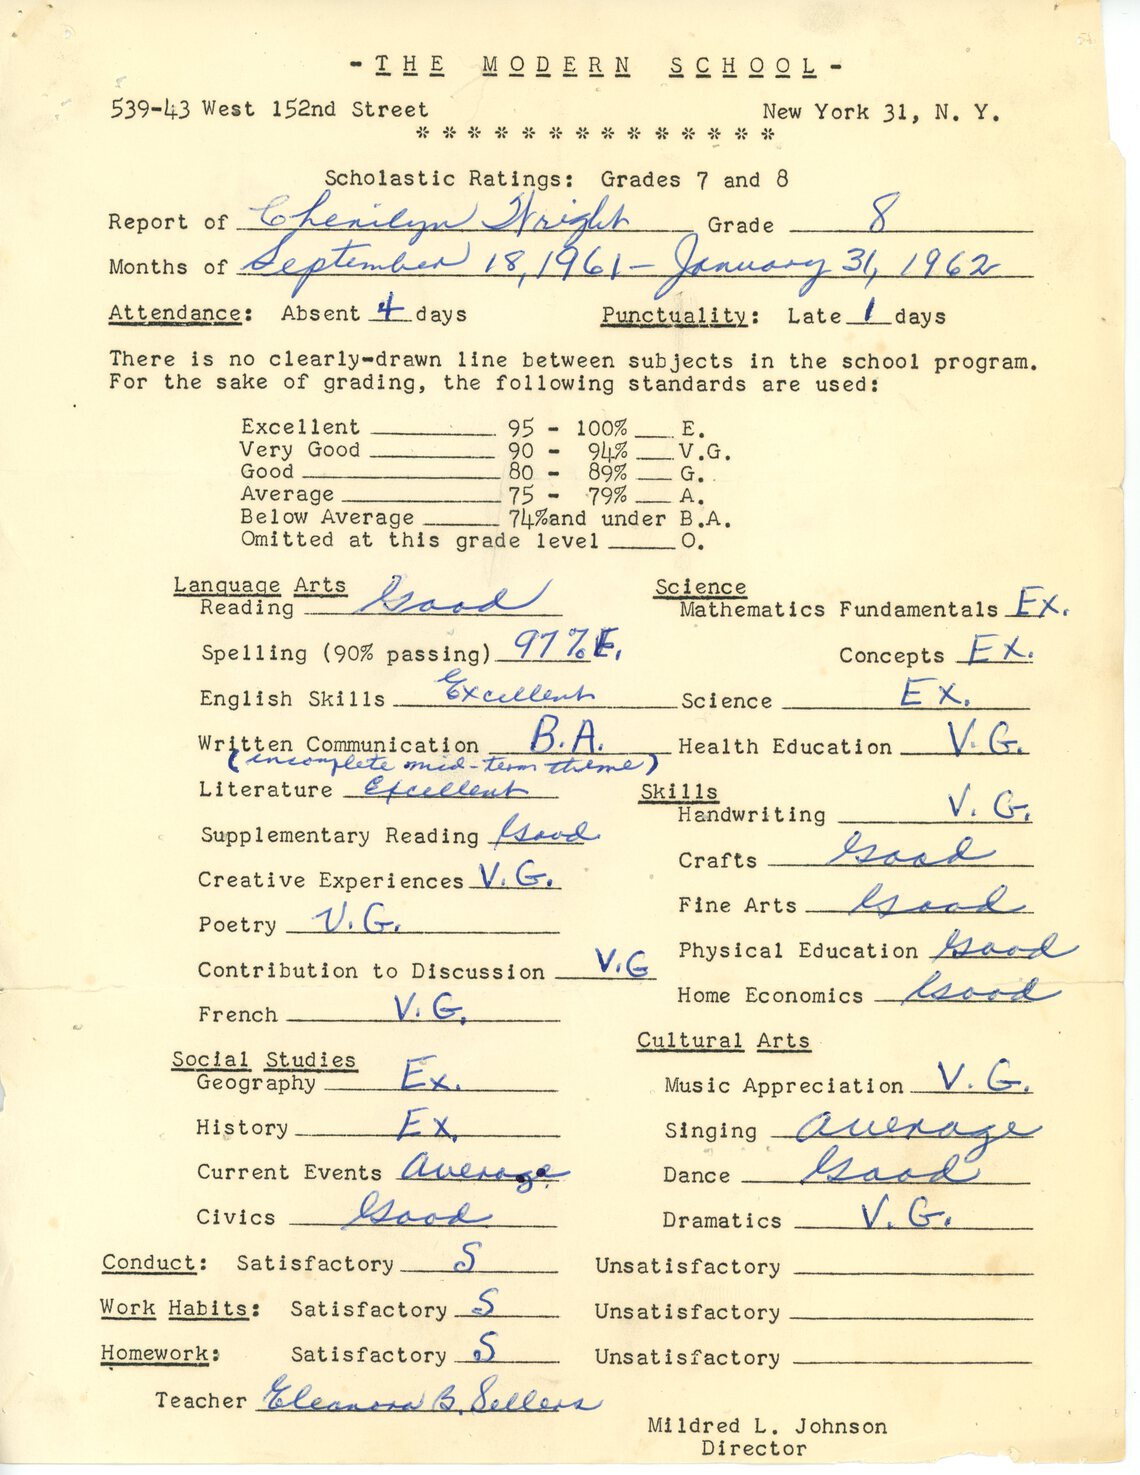 - THE MODERN SCHOOL -
539-43 West 152nd Street New York 31, N. Y.
* * * * * * * * * * * * * *
Scholastic Ratings: Grades 7 and 8
Report of Cherilyn Wright Grade 8
Months of September 18, 1961 - January 31, 1962
Attendance: Absent 4 days Punctuality: Late 1 days
There is no clearly-drawn line between subjects in the school program.
For the sake of grading, the following standards are used:
Excellent 95 - 100% E.
Very Good 90 - 94% V.G.
Good 80 - 89% G.
Average 75 - 79% A.
Below Average 74%and under B.A.
Omitted at this grade level O.
Language Arts
Reading Good
Spelling (90% passing) 97% E.
English Skills Excellent
Written Communication B.A.
(incomplete mid-term theme)
Literature Excellent
Supplementary Reading Good
Creative Experiences V.G.
Poetry V.G.
Contribution to Discussion V.G
French V.G.
Social Studies
Geography Ex.
History Ex.
Current Events Average
Civics Good
Science
Mathematics Fundamentals Ex.
Concepts Ex.
Science Ex.
Health Education V.G.
Skills
Handwriting V.G.
Crafts Good
Fine Arts Good
Physical Education Good
Home Economics Good
Cultural Arts
Music Appreciation V.G.
Singing Average
Dance Good
Dramatics V.G.
Conduct: Satisfactory S Unsatisfactory
Work Habits: Satisfactory S Unsatisfactory
Homework: Satisfactory S Unsatisfactory
Teacher Eleanora B. Sellers
Mildred L. Johnson
Director